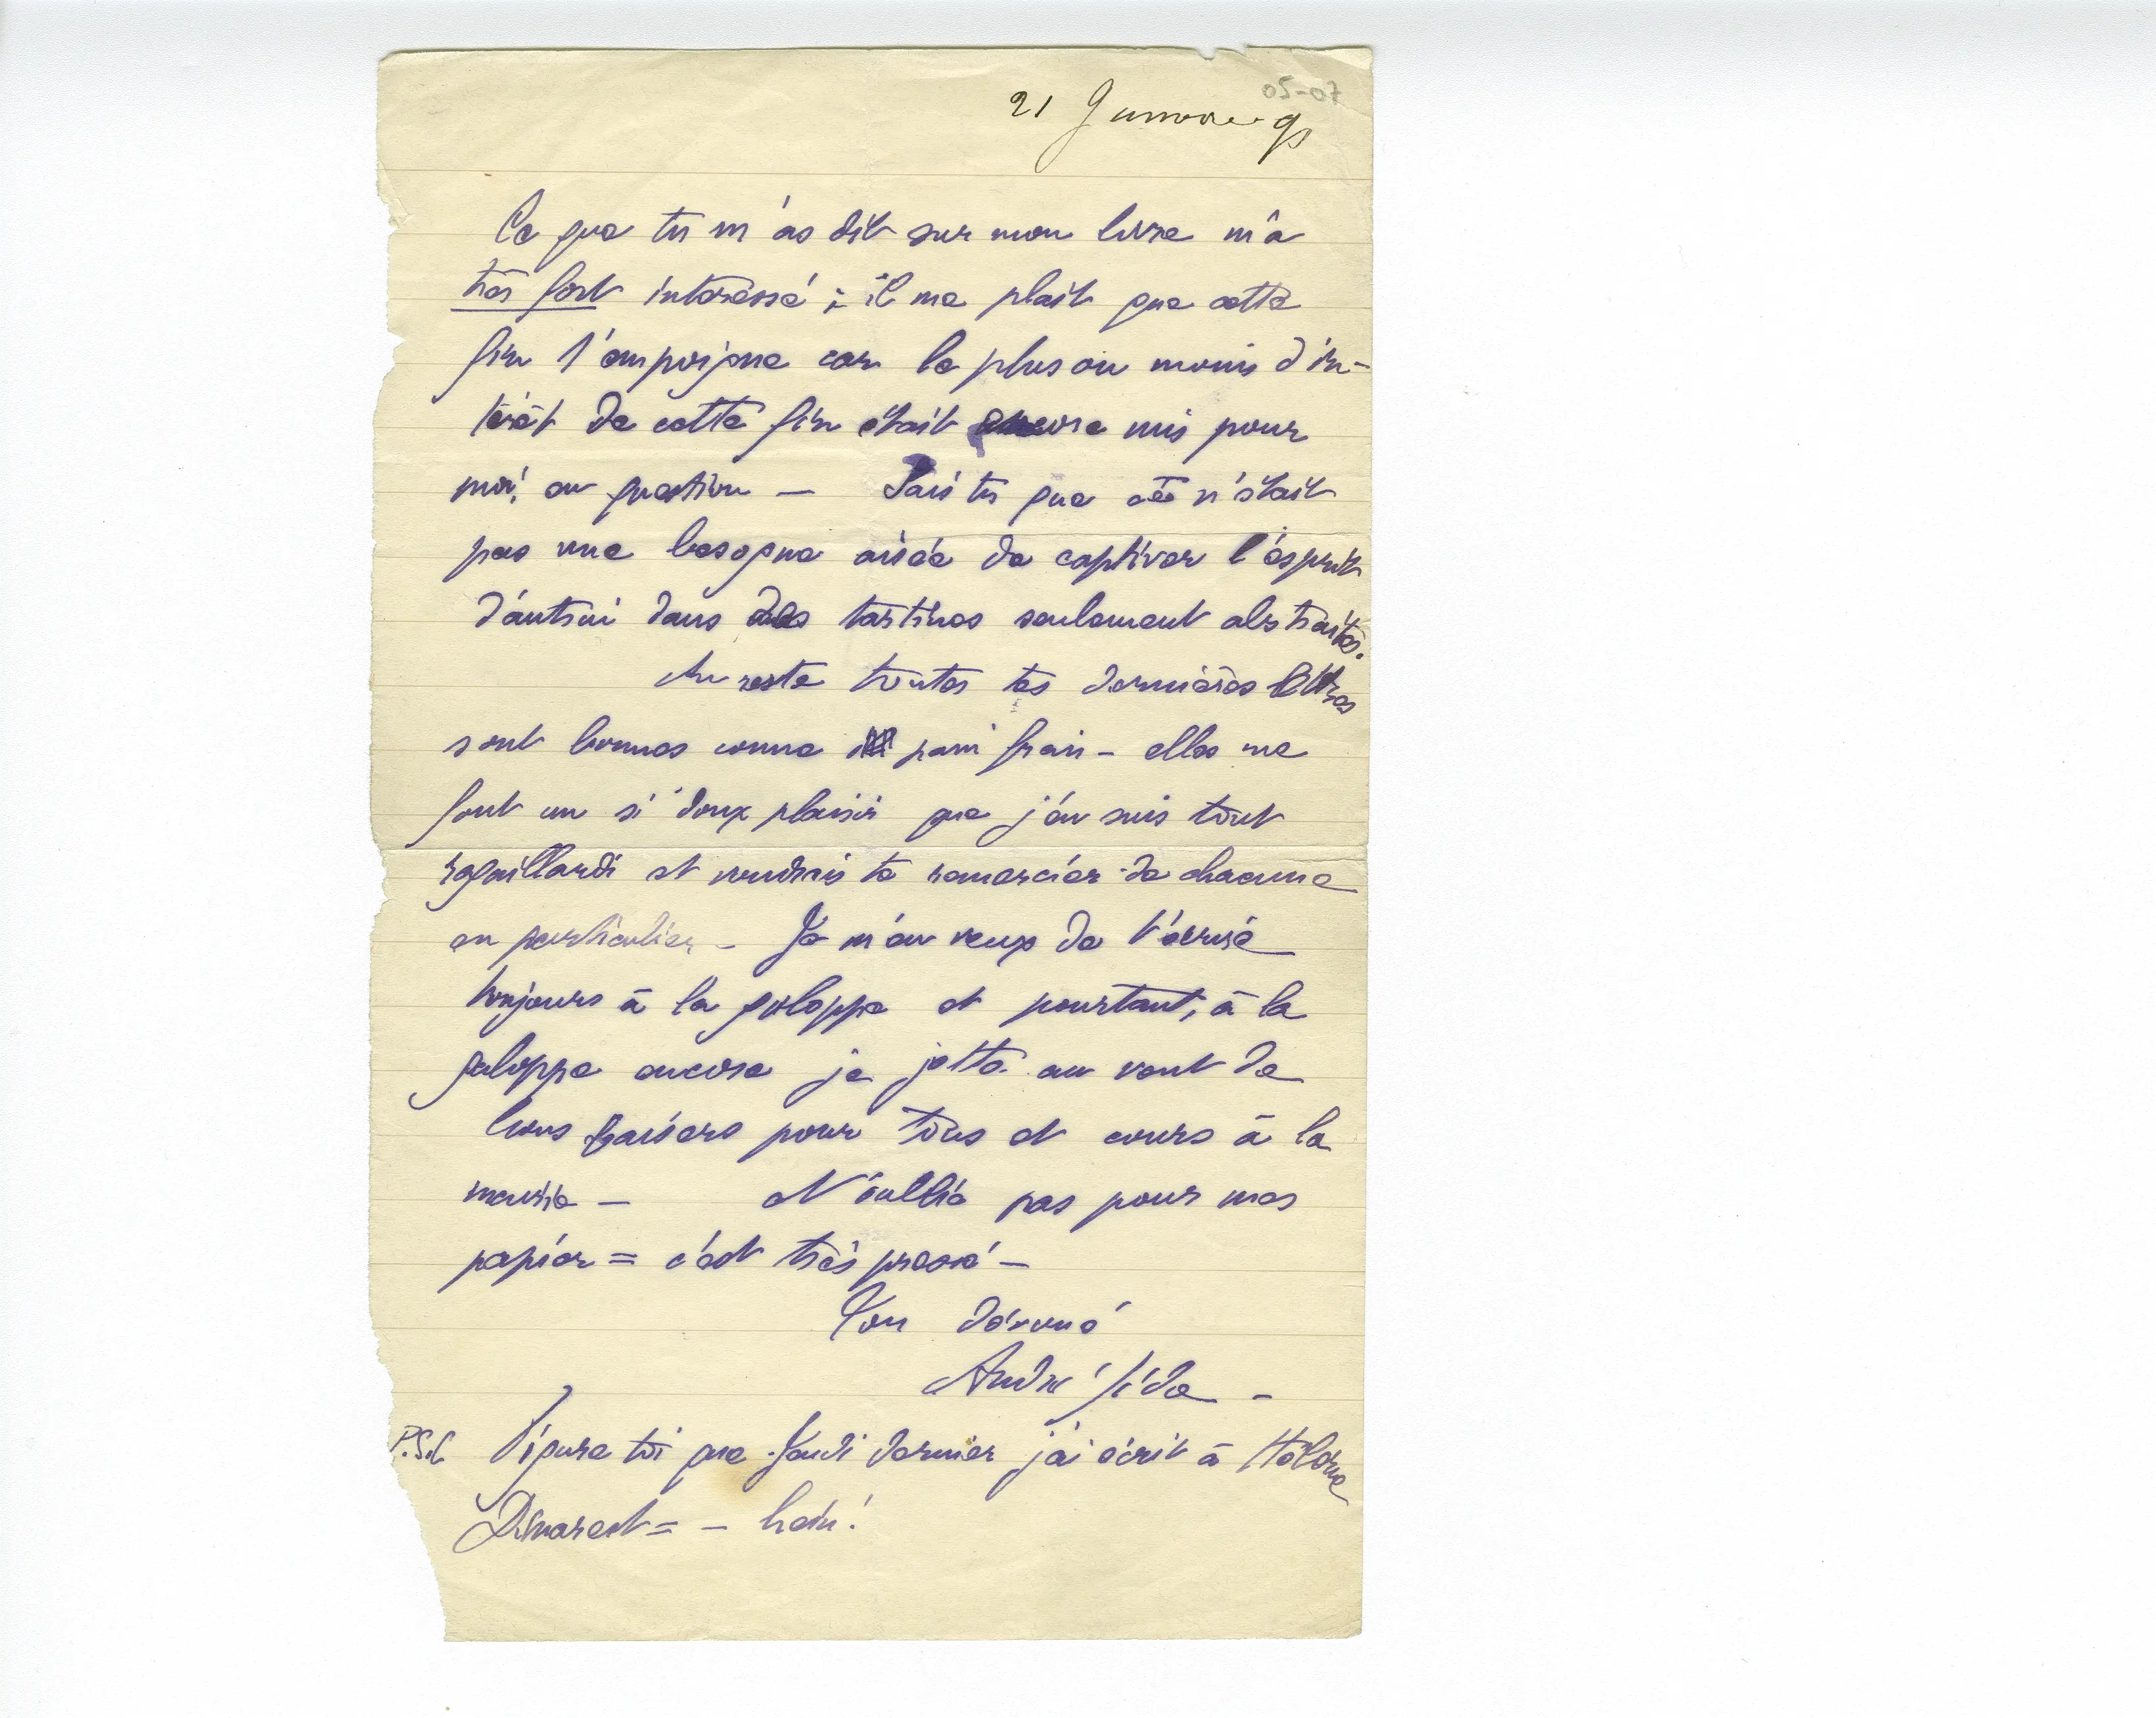 05-07
21 Janvier 91
Ce que tu m'as dit sur mon livre m'a
très fort intéressé ; il me plait que cette
fin t'empoigne car le plus ou moins d'in-
térêt de cette fin était encore mis pour
moi, en question — Sais tu que ce n'était
pas une besogne aisée de captiver l'esprit
d'autrui dans des tartines seulement abstraites.
Au reste toutes tes dernières lettres
sont bonnes comme pain frais – elles me
font un si doux plaisir que j'en suis tout
ragaillardi et voudrais te remercier de chacune
en particulier – Je m'en veux de t'écrire
toujours à la galoppe et pourtant, à la
galoppe encore je jette au vent de
bons baisers pour tous et cours à la
mairie — N'oublie pas pour mes
papier = c'est très pressé –
Ton dévoué
André Gide –
P.S. Figure toi que Jeudi dernier j'ai écrit à Hélène
Démarest = – hein!